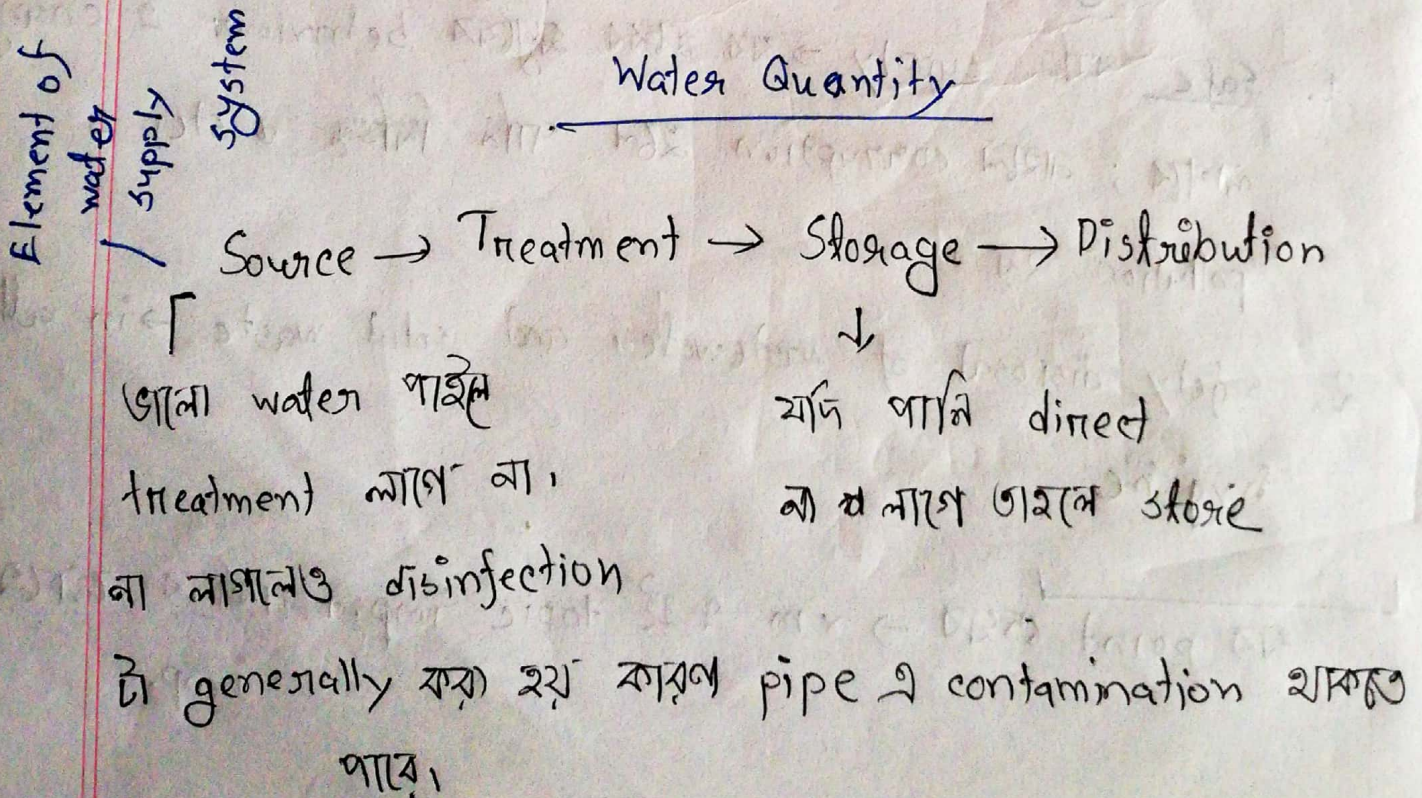 Element of
water
supply
system
Water Quantity
Source → Treatment → Storage → Distribution
ভালো water পাইলে
treatment লাগে না।
না লাগলেও disinfection
টা generally করা হয় কারণ pipe এ contamination থাকতে
পারে।
↓
যদি পানি direct
না লাগে তাহলে store